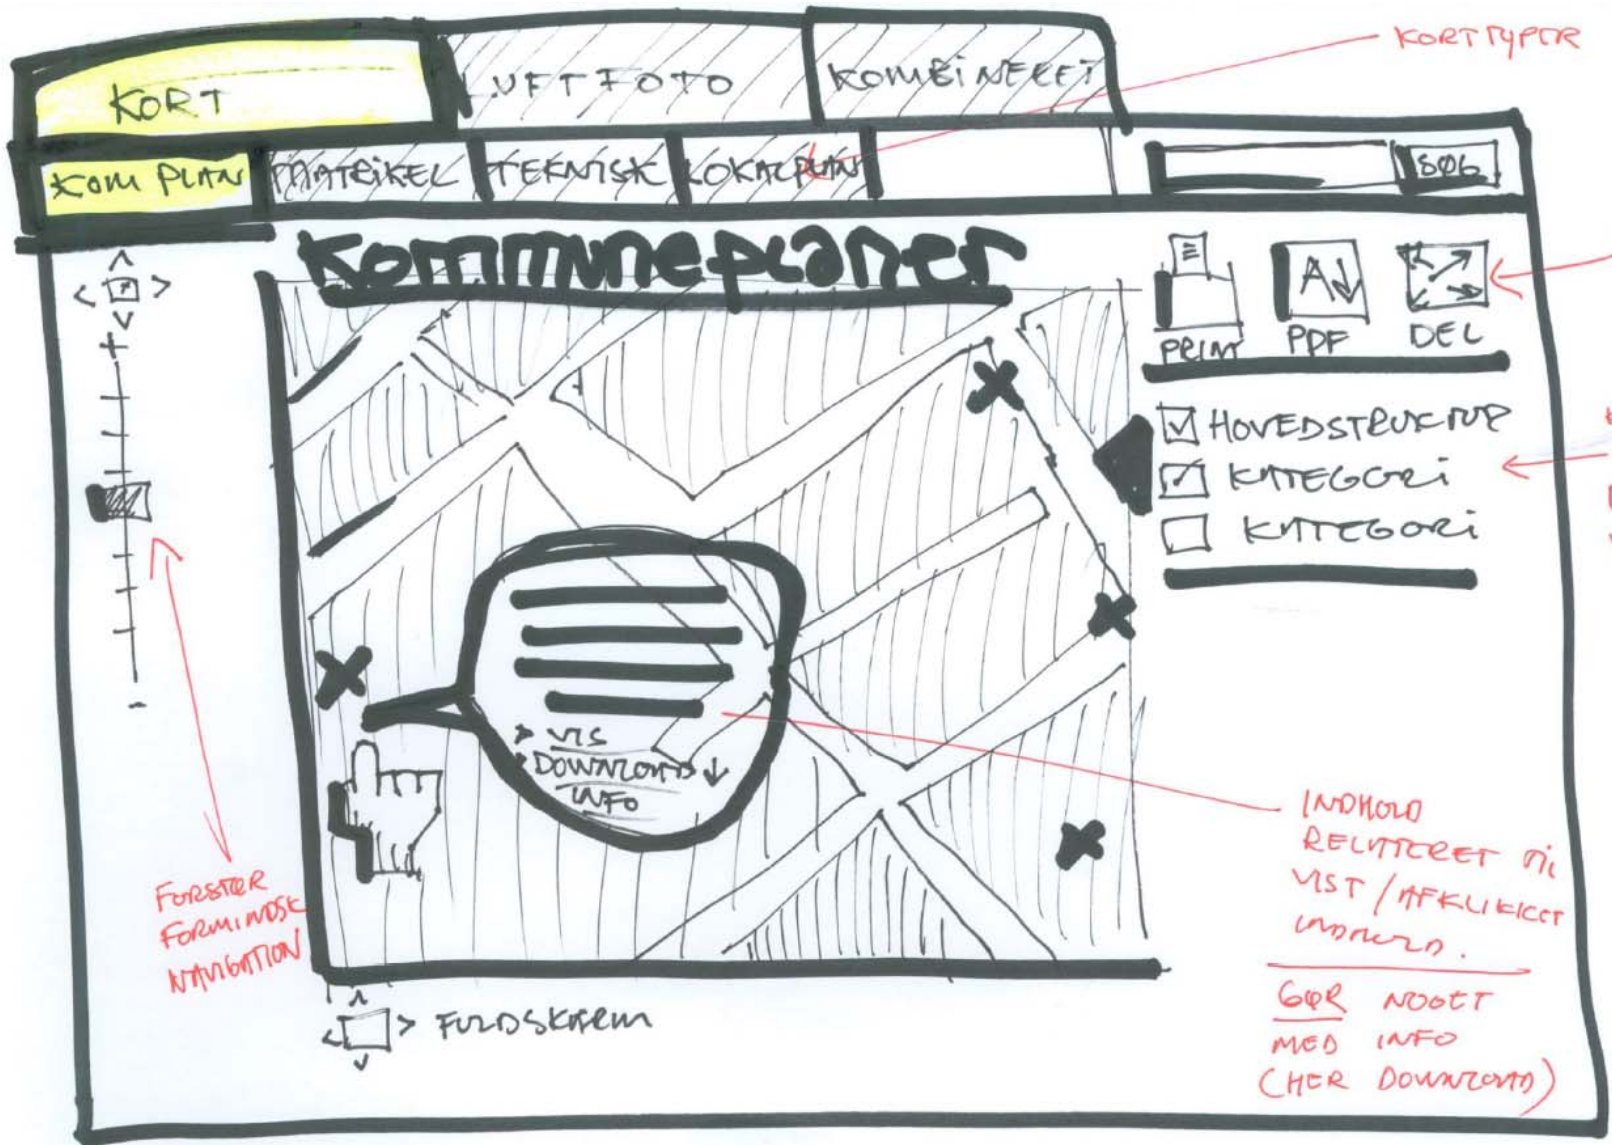 KORT TYPER
KORT
LUFTFOTO
KOMBINERET
KOM PLAN
MATRIKEL
TEKNISK
LOKALPLAN
SØG
Kommuneplaner
PRINT
PDF
DEL
+
HOVEDSTRUKTUR
KATEGORI
KATEGORI
-
> VIS
> DOWNLOAD ↓
INFO
FORSTØR
FORMINDSK
NAVIGATION
INDHOLD
RELATERET TIL
VIST / AFKLIKKET
INDHOLD.
GØR NOGET
MED INFO
(HER DOWNLOAD)
FULDSKÆRM